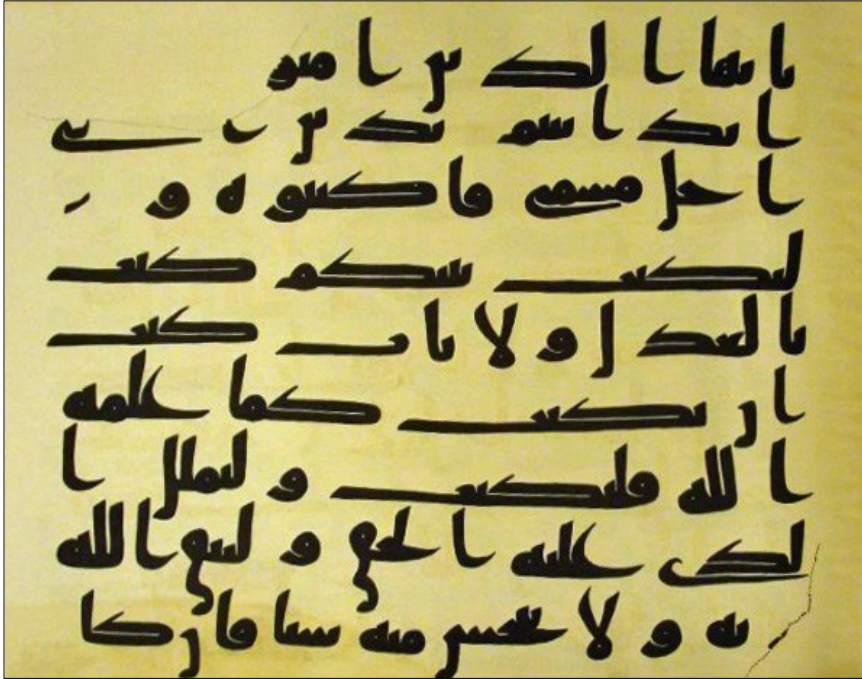 يايها الذين امنو
ا تداينتم بدين
اجل مسمى فاكتبوه و
ليكتب بينكم كتب
بالعدل ولا ياب كتب
ان يكتب كما علمه
الله فليكتب وليملل ا
لذى عليه الحق وليتق الله
به ولا يبخس منه شيا فان كا